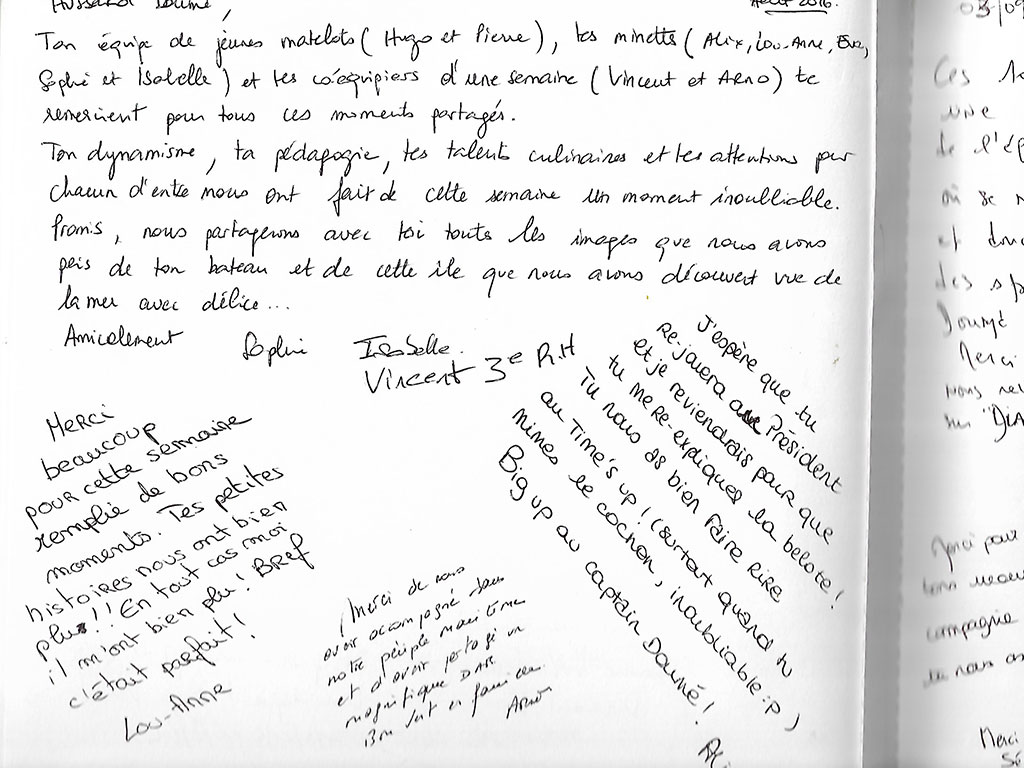 Août 2016.
Ton équipe de jeunes matelots (Hugo et Pierre), tes minettes (Alix, Lou-Anne, Eve,
Sophie et Isabelle) et tes coéquipiers d'une semaine (Vincent et Arno) te
remercient pour tous ces moments partagés.
Ton dynamisme, ta pédagogie, tes talents culinaires et tes attentions pour
chacun d'entre nous ont fait de cette semaine un moment inoubliable.
Promis, nous partagerons avec toi toutes les images que nous avons
pris de ton bateau et de cette île que nous avons découvert vue de
la mer avec délice...
Amicalement Sophie Isabelle.
Vincent 3e R.H
Merci
beaucoup
pour cette semaine
remplie de bons
moments. Tes petites
histoires nous ont bien
plus!! En tout cas moi
il m'ont bien plu! BREF
c'était parfait!
Lou-Anne
Merci de nous
avoir accompagné dans
notre périple maritime
et d'avoir partagé un
magnifique
Arno
J'espère que tu
Re-jouera au Président
et je reviendrais pour que
tu me re-expliques la belote!
Tu nous as bien faire rire
au Time's up! (surtout quand tu
mimes le cochon, inoubliable :p)
Big up au captain Doumé!
Ali
03/09
Ces
une
de l'ép
où se
et
des sp
Doumé
Merci
nous
sur "DIA
Merci pour
bons
compagnie
Merci
Sé